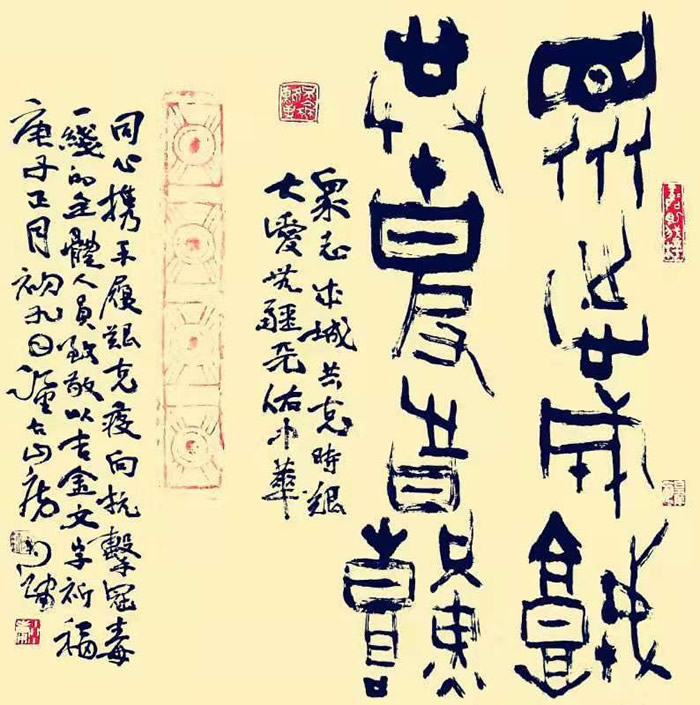 眾志成城
共克時艱
眾志成城共克時艱
大愛无疆天佑中華
同心携手履艱克疫向抗擊冠毒
一綫的全體人員致敬以吉金文字祈福
庚子正月初九日
山房